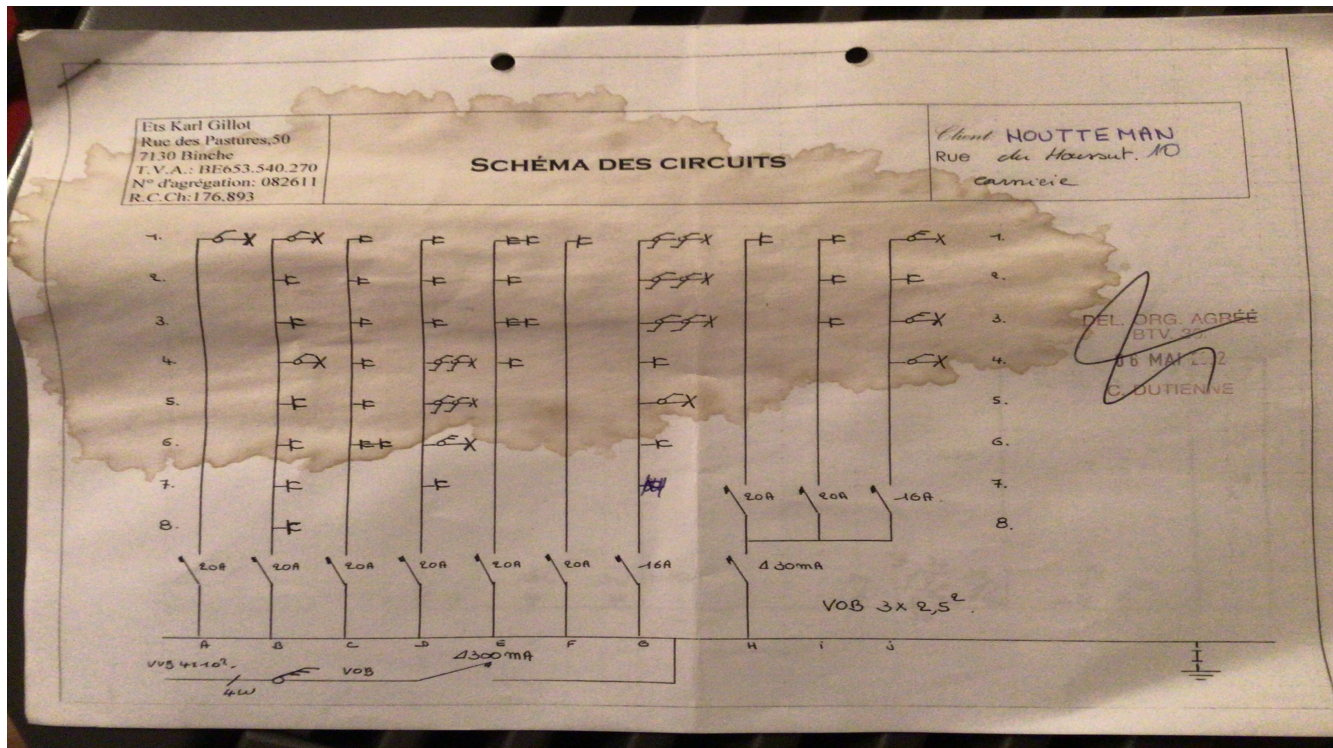 Ets Karl Gillot
Rue des Pastures,50
7130 Binche
T.V.A.: BE653.540.270
N° d'agrégation: 082611
R.C.Ch:176.893
SCHÉMA DES CIRCUITS
Client HOUTTEMAN
Rue du 10
carnière
1. 1.
2. 2.
3. 3.
4. 4.
5. 5.
6. 6.
7. 7.
8. 8.
DEL. ORG. AGRÉÉ
BTV.
06 MAI
C. DUTIENNE
20A 20A 16A
20A 20A 20A 20A 20A 20A 16A Δ30mA
VOB 3x2,5²
A B C D E F G H i J
VVB 4x10² VOB Δ300mA
4W